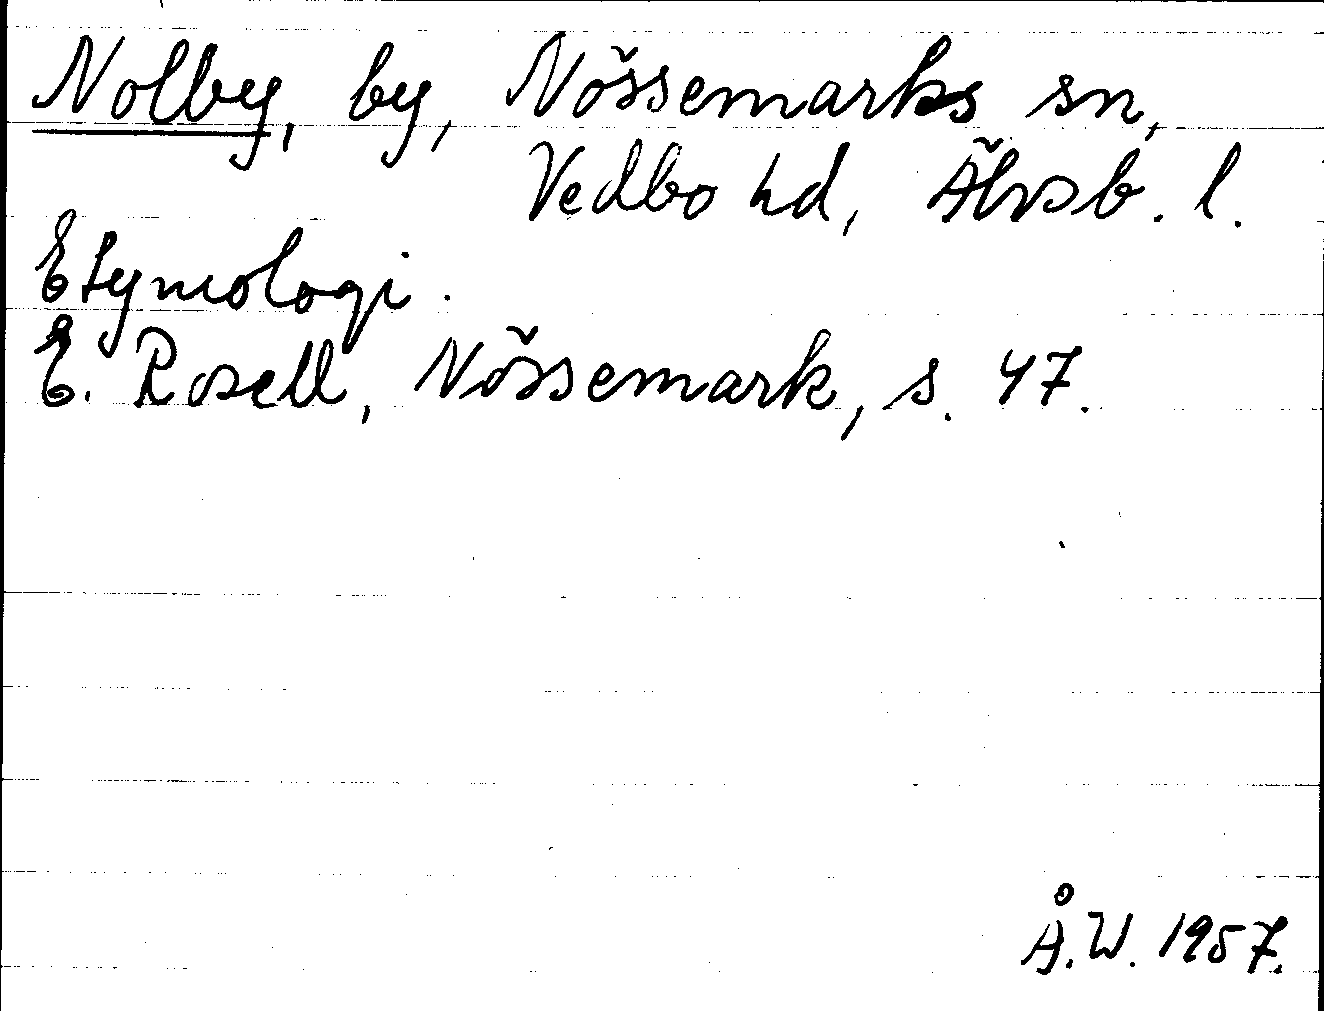 Nolby, by, Nössemarks sn,
Vedbo hd, Älvsb. l.
Etymologi.
E. Rosell, Nössemark, s. 47.
Å.W. 1957.